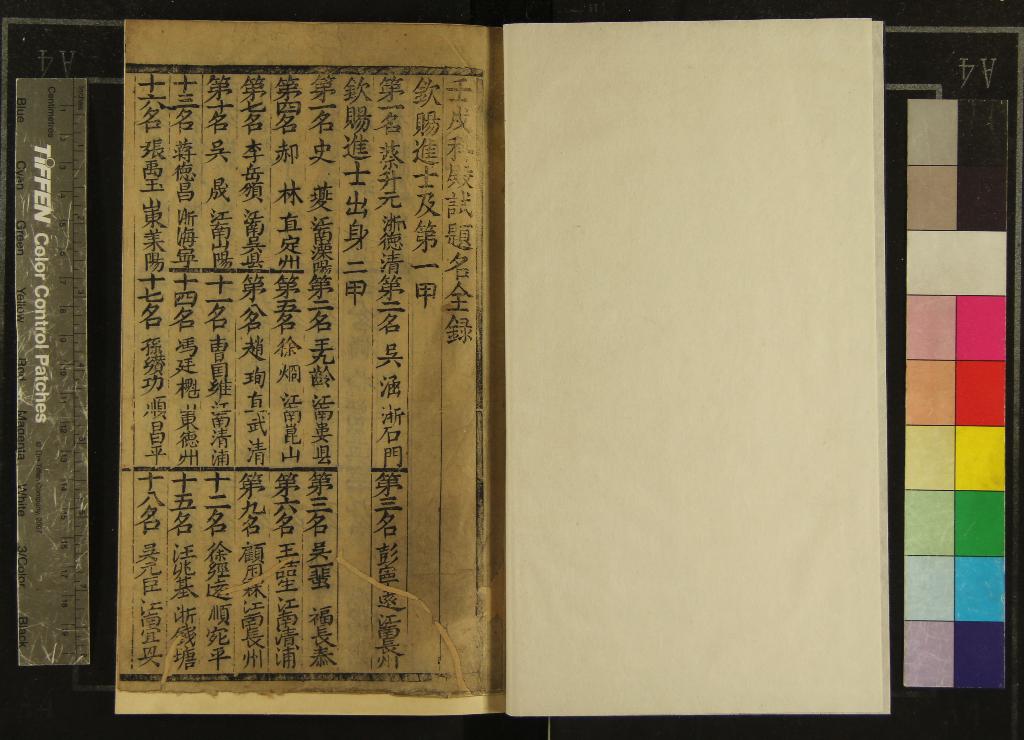 壬戌科殿試題名全録
欽賜進士及第一甲
第一名 蔡升元 浙德清 第二名 吳涵 浙石門 第三名 彭寧求 江南長州
欽賜進士出身二甲
第一名 史夔 江南溧陽 第二名 王九齡 江南婁县 第三名 吳一蜚 福長泰
第四名 郝林 直定州 第五名 徐炯 江南崑山 第六名 王喆生 江南清浦
第七名 李岳頒 江南吳县 第八名 趙珣 直武清 第九名 顧用霖 江南長州
第十名 吳晟 江南山陽 十一名 曹国維 江南清浦 十二名 徐經遠 順宛平
十三名 蒋德昌 浙海寧 十四名 馮廷櫆 東德州 十五名 汪兆基 浙錢塘
十六名 張禹玉 東莱陽 十七名 孫纘功 順昌平 十八名 吴元臣 江南宜兴
TIFFEN Color Control Patches
© The Tiffen Company, 2007
Centimetres
Inches
Blue
Cyan
Green
Yellow
Red
Magenta
White
3/Color
Black
A4
A4